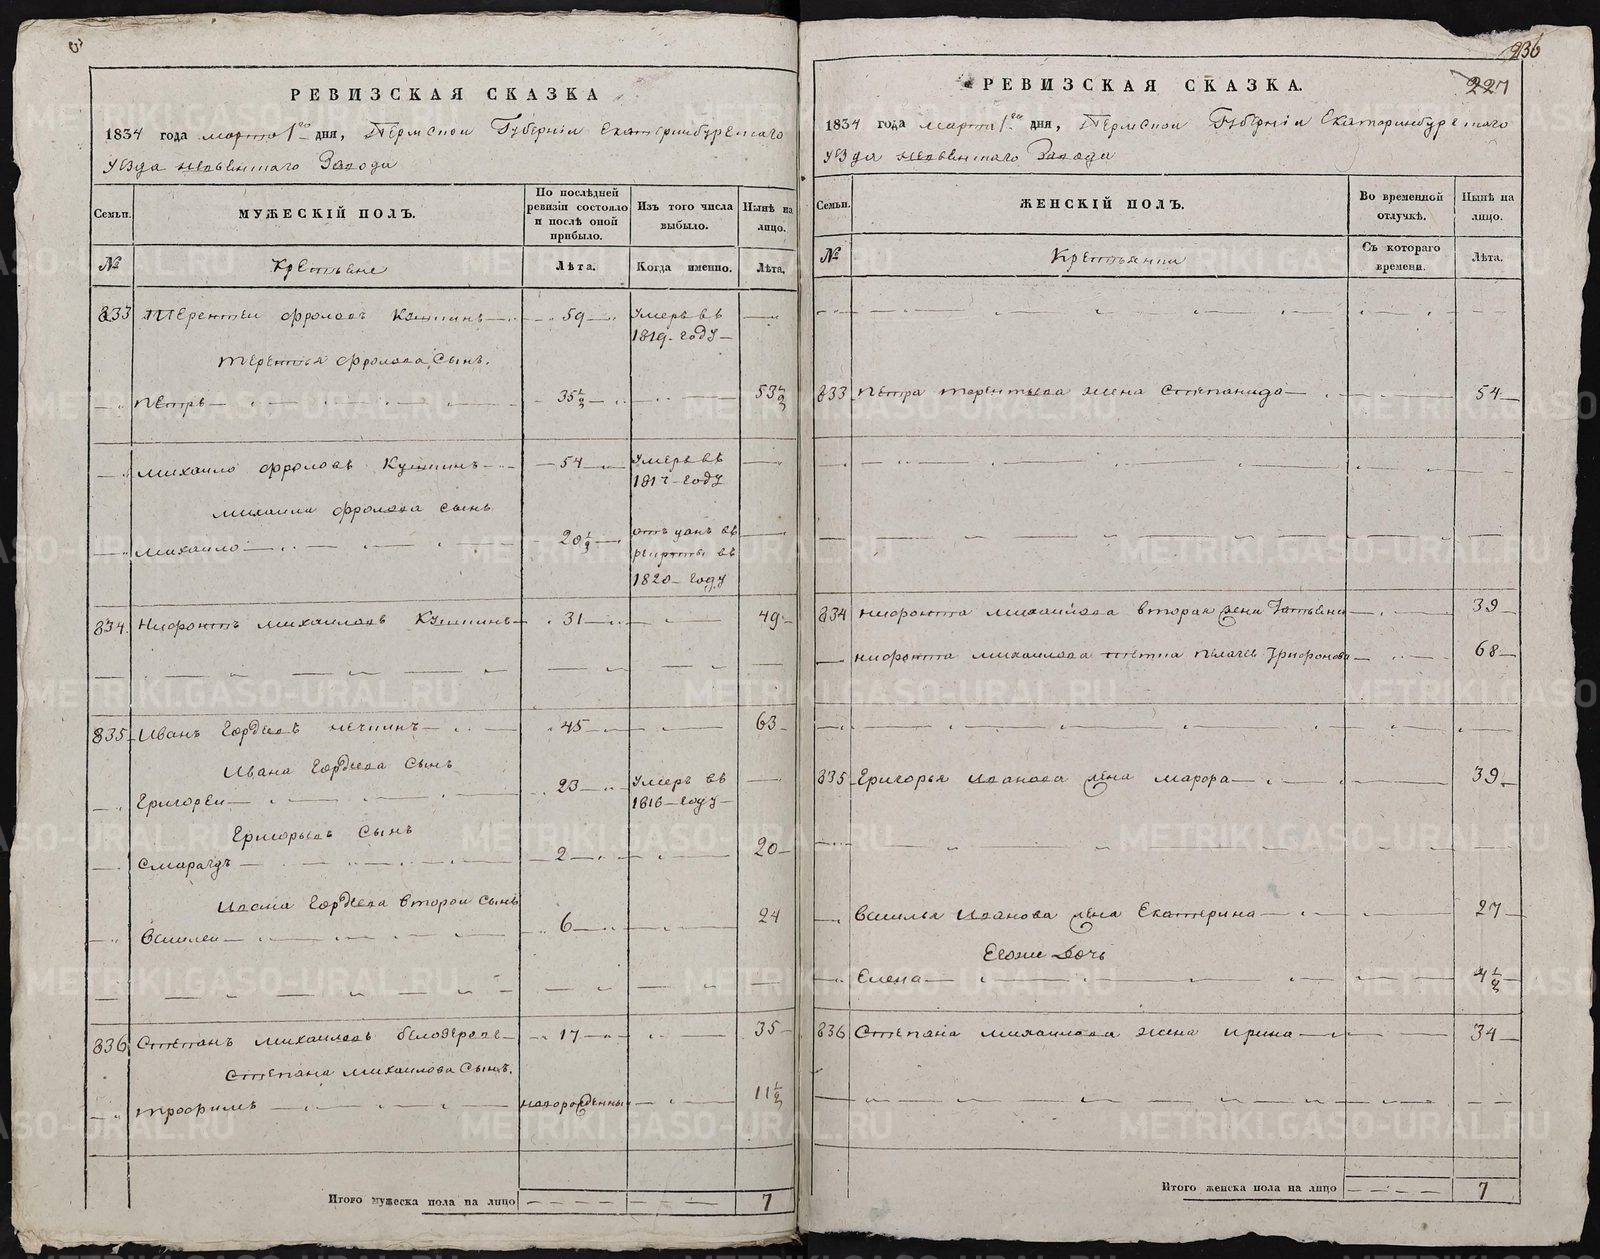 236
227
РЕВИЗСКАЯ СКАЗКА
1834 года марта 1го дня, Пермской Губернiи Екатеринбургскаго
уезда невьянскаго Завода
Семьи.
МУЖЕСКIЙ ПОЛЪ.
По послѣдней ревизiи состояло и послѣ оной прибыло.
Изъ того числа выбыло.
Нынѣ на лицо.
№
Крестьяне
Лѣта.
Когда именно.
Лѣта.
833 Терентеи фроловъ Кушинъ 59 Умеръ въ 1819 году
Терентья фролова сынъ.
Петръ 35½ 53½
Михаило фроловъ Кушинъ 54 Умеръ въ 1817 году
Михаила фролова сынъ
Михаило 20½ отъданъ въ рекруты въ 1820 году
834 Нифонтъ михаиловъ Кушинъ 31 49
835 Иванъ Гордеевъ 45 63
Ивана Гордеева сынъ
Григореи 23 Умеръ въ 1816 году
Григорьевъ сынъ
Смарагдъ 2 20
Ивана Гордеева второи сынъ
Василеи 6 24
836 Степанъ Михаиловъ 17 35
Степана михаилова сынъ.
трофимъ новорожденныи 11½
Итого мужеска пола на лицо 7
РЕВИЗСКАЯ СКАЗКА.
1834 года марта 1го дня, Пермской Губернiи Екатеринбургскаго
уезда невьянскаго Завода
Семьи.
ЖЕНСКIЙ ПОЛЪ.
Во временной отлучкѣ.
Нынѣ на лицо.
№
Крестьянки
Съ котораго времени.
Лѣта.
833 Петра терентьева жена Степанида 54
834 нифонта михаилова вторая жена Татьяна 39
нифонта михаилова тетка Трифонова 68
835 Григорья Иванова жена марфа 39
Василья Иванова жена Екатерина 27
Егоже Дочь
Елена 4½
836 Степана михаилова жена ирина 34
Итого женска пола на лицо 7
METRIKI.GASO-URAL.RU